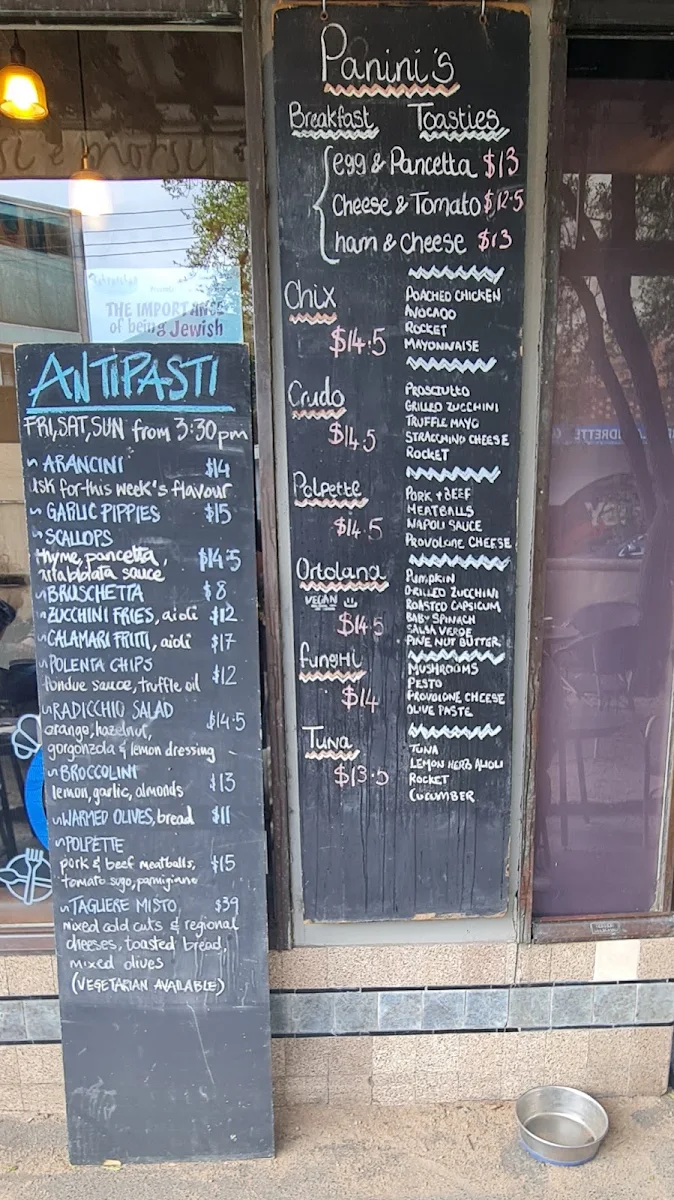 Panini's
Breakfast Toasties
egg & Pancetta $13
cheese & Tomato $12.5
ham & cheese $13
Chix
$14.5
POACHED CHICKEN
AVOCADO
ROCKET
MAYONNAISE
Crudo
$14.5
PROSCIUTTO
GRILLED ZUCCHINI
TRUFFLE MAYO
STRACCHINO CHEESE
ROCKET
Polpette
$14.5
PORK + BEEF
MEATBALLS
NAPOLI SAUCE
PROVOLONE CHEESE
Ortolana
VEGAN
$14.5
PUMPKIN
GRILLED ZUCCHINI
ROASTED CAPSICUM
BABY SPINACH
SALSA VERDE
PINE NUT BUTTER
funghi
$14
MUSHROOMS
PESTO
PROVOLONE CHEESE
OLIVE PASTE
Tuna
$13.5
TUNA
LEMON HERB AIOLI
ROCKET
CUCUMBER
THE IMPORTANCE
of being Jewish
ANTIPASTI
FRI, SAT, SUN from 3:30pm
~ ARANCINI $14
ask for this week's flavour
~ GARLIC PIPPIES $15
~ SCALLOPS
thyme, pancetta, $14.5
arrabbiata sauce
~ BRUSCHETTA $8
~ ZUCCHINI FRIES, aioli $12
~ CALAMARI FRITTI, aioli $17
~ POLENTA CHIPS
fondue sauce, truffle oil $12
~ RADICCHIO SALAD $14.5
orange, hazelnut,
gorgonzola & lemon dressing
~ BROCCOLINI
lemon, garlic, almonds $13
~ WARMED OLIVES, bread $11
~ POLPETTE
pork & beef meatballs, $15
tomato sugo, parmigiano
~ TAGLIERE MISTO $39
mixed cold cuts & regional
cheeses, toasted bread,
mixed olives
(VEGETARIAN AVAILABLE)